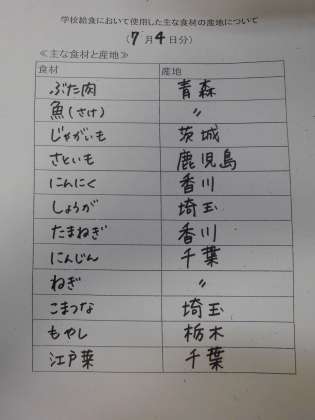 学校給食において使用した主な食材の産地について
(7月4日分)
≪主な食材と産地≫
食材 産地
ぶた肉 青森
魚(さけ) 〃
じゃがいも 茨城
さといも 鹿児島
にんにく 香川
しょうが 埼玉
たまねぎ 香川
にんじん 千葉
ねぎ 〃
こまつな 埼玉
もやし 栃木
江戸菜 千葉